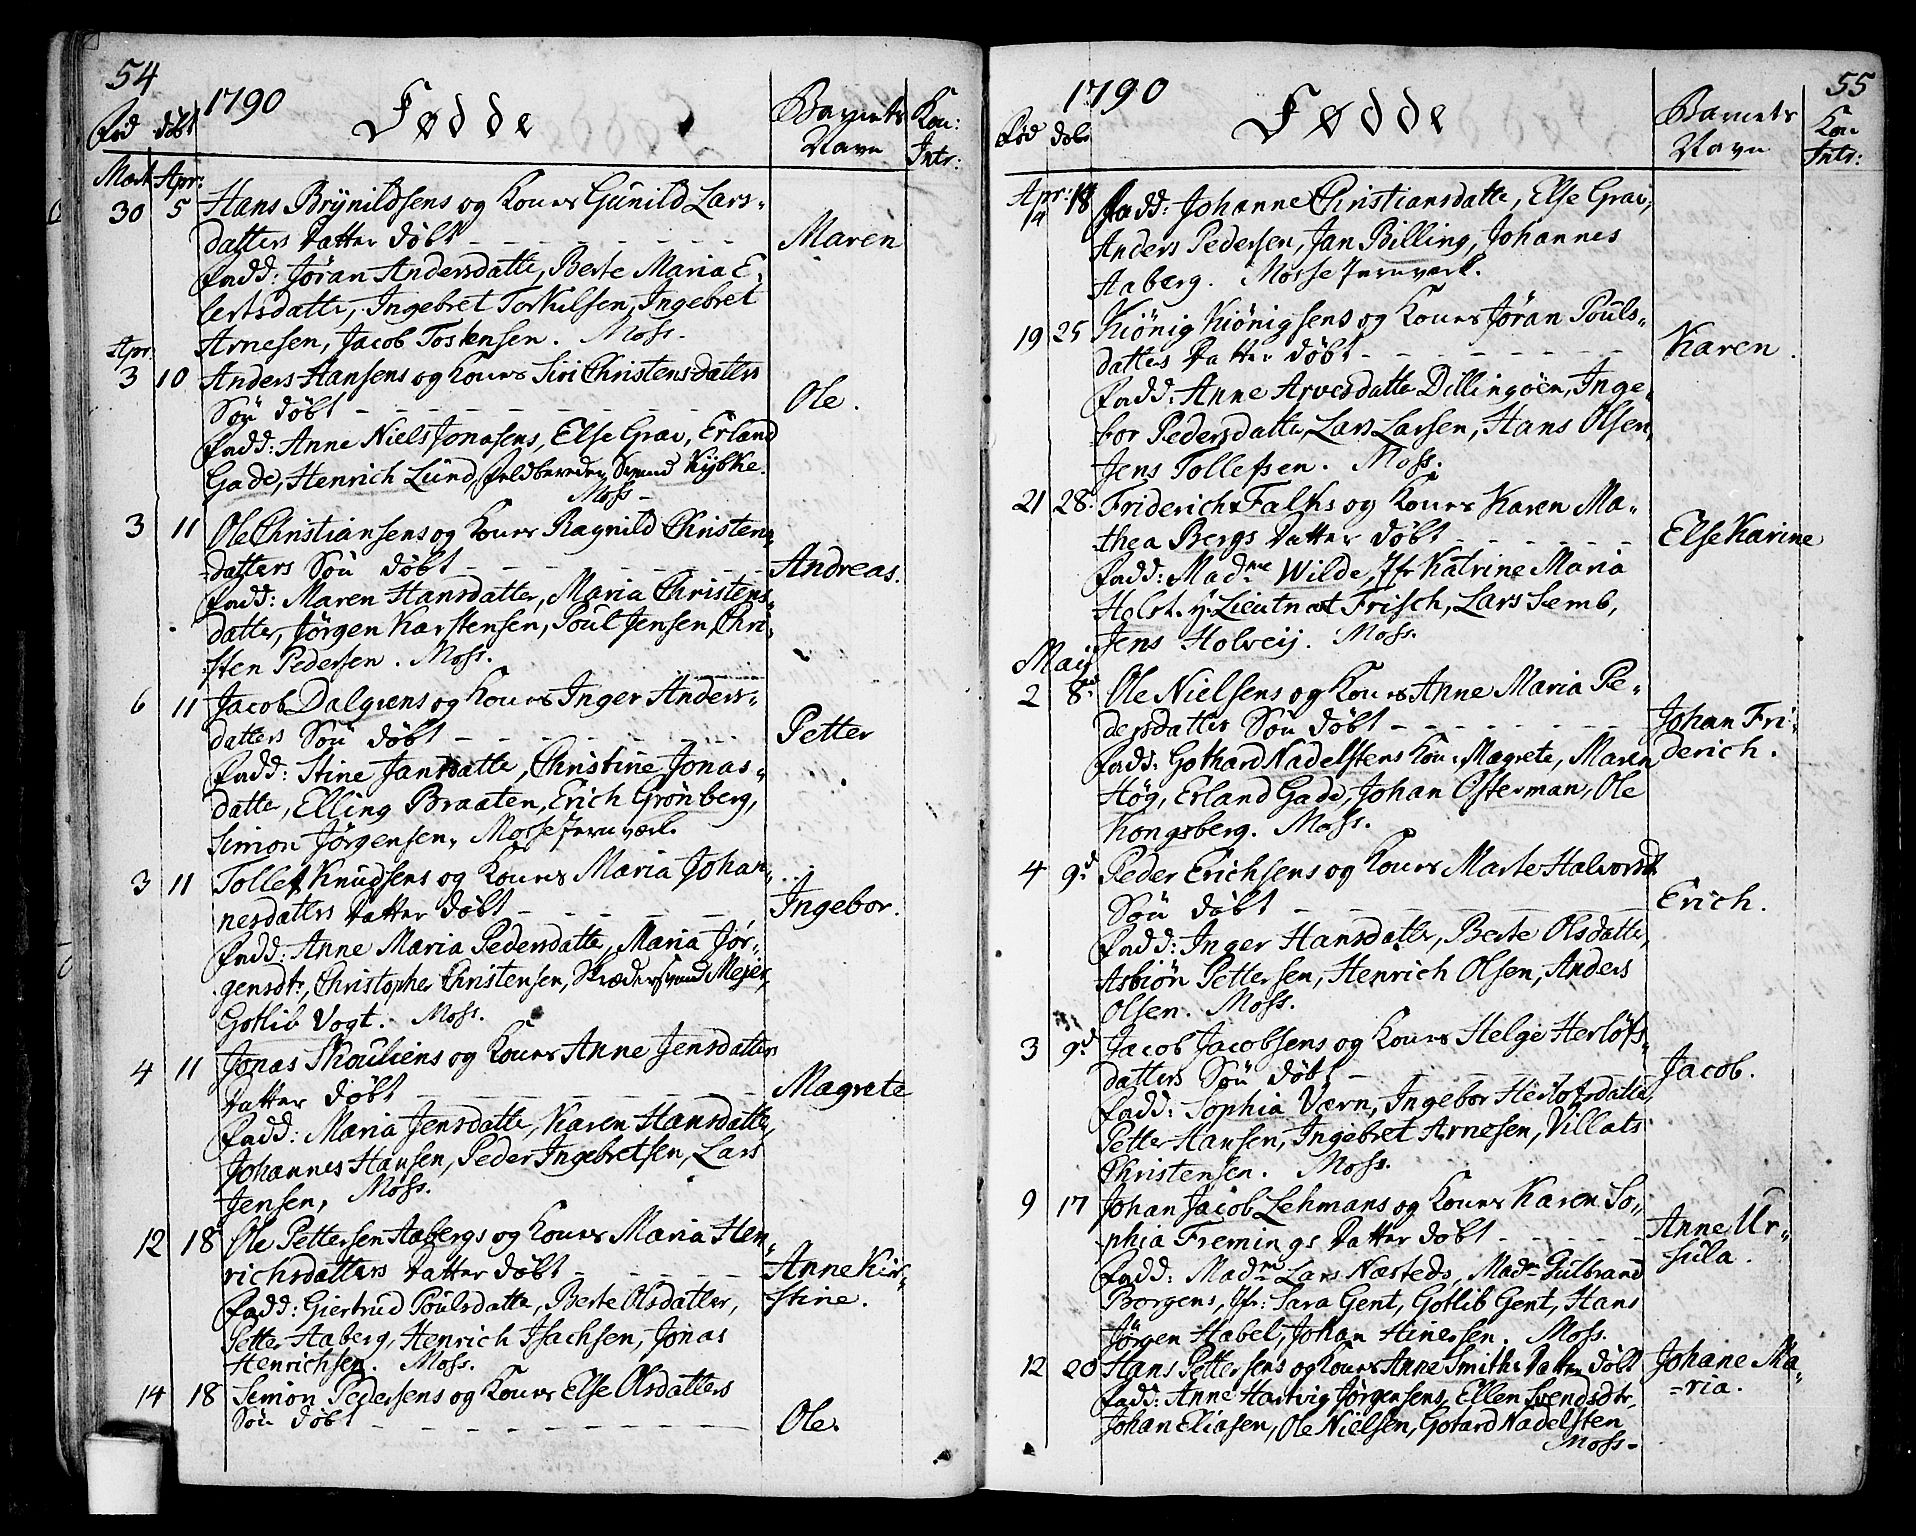 54
1790 Fødde
Fød døbt
Barnets Navn
Kon: Intr:
Mart. Apr:
30 5 Hans Brÿnildsens og Kones Gunild Lars-
datters Datter døbt - - - - - - - Maren
Fadd: Jøran Andersdatte, Berte Maria E-
lertsdatte, Ingebret Torkilsen, Ingebret
Arnesen, Jacob Tostensen. Moss.
Apr:
3 10 Anders Hansens og Kones Siri Christensdatters
Søn døbt - - - - - - - - Ole.
Fadd: Anne Niels Jonasens, Else Grav, Erland
Gade, Henrich Lund, Feldbereder Svend Kybke.
Moss -
3 11 Ole Christiansens og Kones Ragnild Christens-
datters Søn døbt - - - - - - - Andreas.
Fadd: Maren Hansdatter, Maria Christens-
datter, Jørgen Karstensen, Poul Jensen, Chri-
sten Pedersen. Moss.
6 11 Jacob Dalgrens og Kones Inger Anders-
datters Søn døbt - - - - - - - Petter
Fadd: Stine Jansdatte, Christine Jonas-
datte, Elling Braaten, Erich Grønberg,
Simon Jørgensen, Mosse Jernværk.
3 11 Tollef Knudsens og Kones Maria Johan-
nesdatters Datter døbt - - - - - Ingebor.
Fadd: Anne Maria Pedersdatte, Maria Jør-
gensdr, Christopher Christensen, Skrædersvend Mejer,
Gotlib Vogt. Moss.
4 11 Jonas Skouliens og Kones Anne Jensdatters
Datter døbt - - - - - - - Magrete
Fadd: Maria Jensdatte, Karen Hansdatte,
Johannes Hansen, Peder Ingebretsen, Lars
Jensen, Moss.
12 18 Ole Pettersen Aabergs og Kones Maria Hen-
richsdatters Datter døbt - - - - Anne Kir-
Fadd: Giertrud Poulsdatte, Berte Olsdatter, stine.
Petter Aaberg, Henrich Isachsen, Jonas
Henrichsen. Moss.
14 18 Simon Pedersens og Kones Else Olsdatters
Søn døbt - - - - - - - - Ole.
55
1790 Fødde
Fød døbt
Barnets Navn
Kon Intr:
Apr:
14 18 Fadd: Johanne Christiansdatte, Else Grav,
Anders Pedersen, Jan Billing, Johannes
Aaberg. Mosse Jernværk.
19 25 Kiönig Kiönigsens og Kones Jøran Pouls-
datters Datter døbt - - - - - - - Karen.
Fadd: Anne Arvesdatte Dillingøen, Inge-
bor Pedersdatte, Lars Larsen, Hans Olsen,
Jens Tollefsen. Moss.
21 28. Friderich Falks og Kones Karen Ma-
thea Bergs Datter døbt - - - - - - Else Karine
Fadd: Madme Wilde, Jfr Katrine Maria
Holst. y. Lieutnat Frisch, Lars Semb,
Jens Holveij. Moss.
Maij
2 8d Ole Nielsens og Kones Anne Maria Pe-
dersdatters Søn døbt - - - - - - - Johan Fri-
Fadd: Gothard Nadelstens Kone Magrete, Maren derich.
Høg, Erland Gade, Johan Osterman, Ole
Kongsberg. Moss.
4 9d Peder Erichsens og Kones Marte Halvorsd
Søn døbt - - - - - - - - Erich.
Fadd: Inger Hansdatte, Berte Olsdatte,
Asbiøn Pettersen, Henrich Olsen, Anders
Olsen. Moss.
3 9d Jacob Jacobsens og Kones Helge Herløfs-
datters Søn døbt - - - - - - - Jacob.
Fadd: Sophia Værn, Ingebor Herlofsdatte,
Petter Hansen, Ingebret Arnesen, Villats
Christensen. Moss.
9 17 Johan Jacob Lehmans og Kones Karen So-
phia Fremings Datter døbt - - - - - Anne Ur-
Fadd: Madme Lars Næsteds, Madm Gulbrand sula.
Borgens, Jfr: Sara Gent, Gotlib Gent, Hans
Jørgen Habel, Johan Hinersen. Moss.
12 20 Hans Pettersens og Kones Anne Smiths Datter døbt Johane Ma-
Fadd: Anne Hartvig Jørgensens, Ellen Svendsdtr, =ria.
Johan Eliasen, Ole Nielsen, Gotard Nadelsten
Moss -